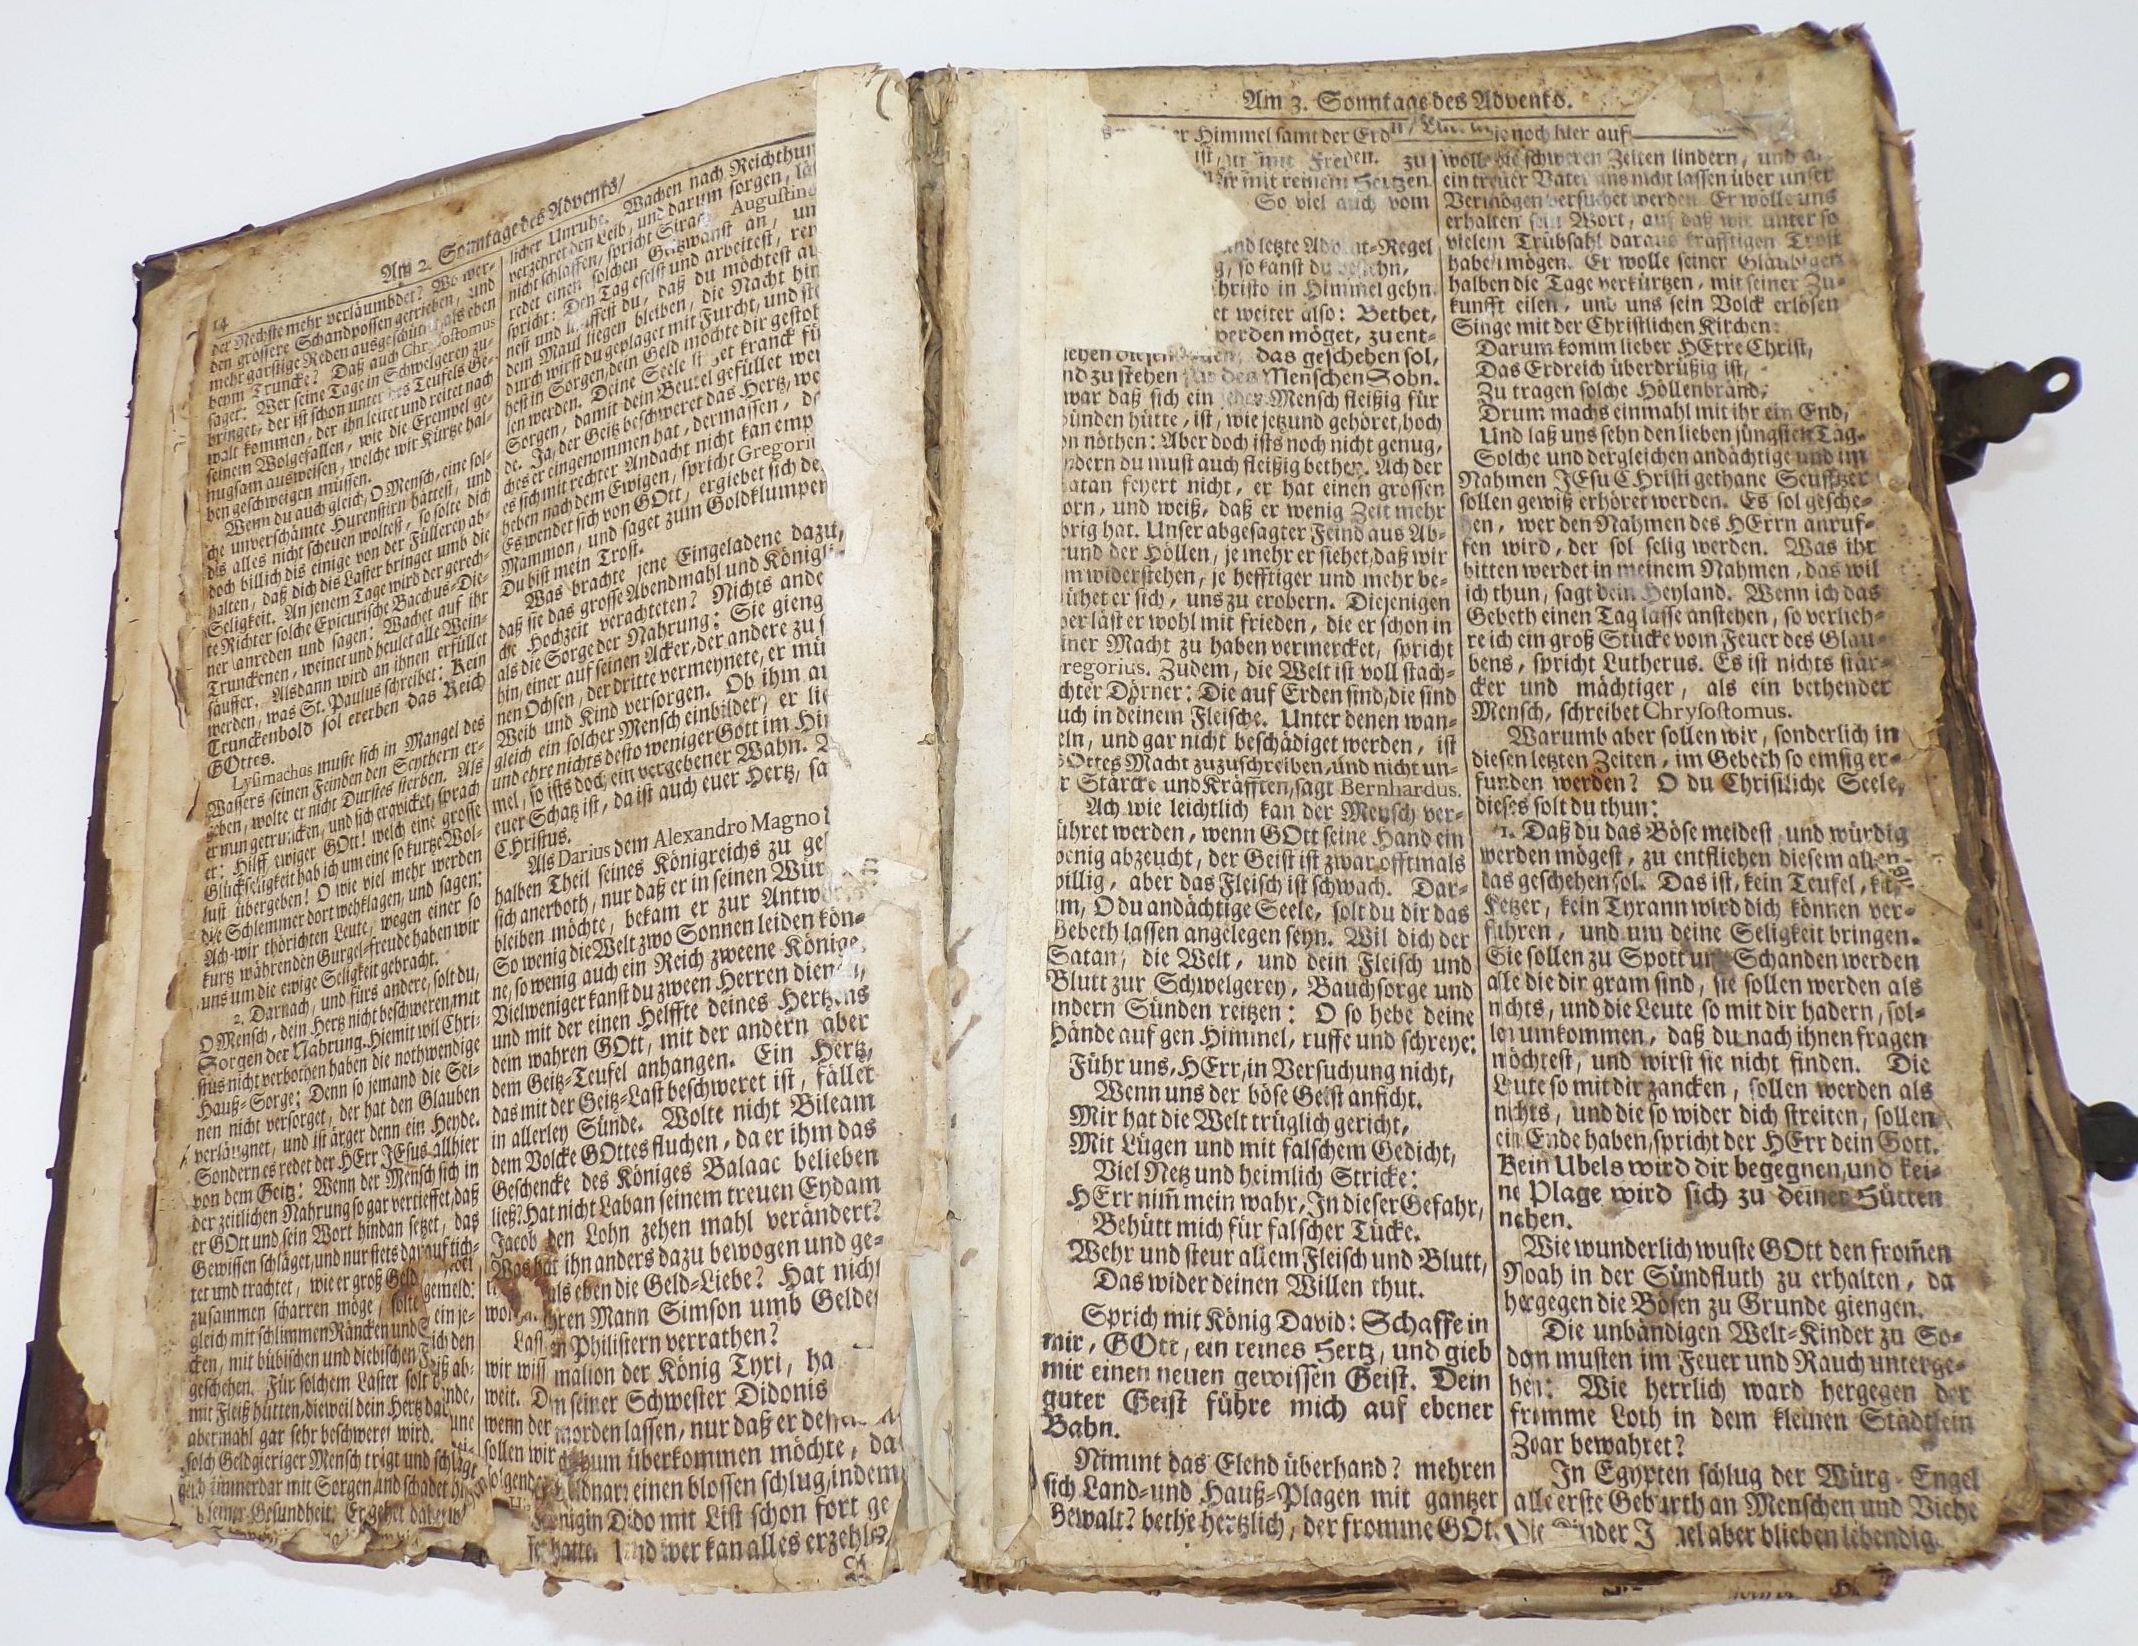 Am 2. Sonntage des Advents/
14
der Nechste mehr verläumbdet? Wo wer-
den grössere Schandpossen getrieben, und
mehr garstige Reden ausgeschüttet, als eben
beym Truncke? Daß auch Chrysostomus
saget: Wer seine Tage in Schwelgeren zu-
bringet, der ist schon unter des Teufels Ge-
walt kommen, der ihn leitet und reitet nach
seinem Wolgefallen, wie die Exempel ge-
nugsam ausweisen, welche wir Kürtze hal-
ben geschweigen müssen.
Wenn du auch gleich, O Mensch, eine sol-
che unverschämte Hurenstirn hättest, und
dis alles nicht scheuen woltest, so solte dich
doch billich dis einige von der Füllerey ab-
halten, daß dich dis Laster bringet umb die
Seligkeit. An jenem Tage wird der gerech-
te Richter solche Epicurische Bacchus-Die-
ner anreden und sagen: Wachet auf ihr
Trunckenen, weinet und heulet alle Wein-
säuffer. Alsdann wird an ihnen erfüllet
werden, was St. Paulus schreibet: Kein
Trunckenbold sol ererben das Reich
GOttes.
Lysimachus muste sich in Mangel des
Wassers seinen Feinden den Scythern er-
geben, wolte er nicht Durstes sterben. Als
er nun getruncken, und sich erqvicket, sprach
er: Hilff ewiger GOtt! welch eine grosse
Glückseligkeit hab ich um eine so kurtze Wol-
lust übergeben! O wie viel mehr werden
die Schlemmer dort wehklagen, und sagen:
Ach wir thörichten Leute, wegen einer so
kurtz währenden Gurgel-freude haben wir
uns um die ewige Seligkeit gebracht.
2. Darnach, und fürs andere, solt du,
O Mensch, dein Hertz nicht beschweren mit
Sorgen der Nahrung. Hiemit wil Chri-
stus nicht verbothen haben die nothwendige
Hauß-Sorge; Denn so jemand die Sei-
nen nicht versorget, der hat den Glauben
verläugnet, und ist ärger denn ein Heyde.
Sondern es redet der HErr JEsus allhier
von dem Geitz: Wenn der Mensch sich in
der zeitlichen Nahrung so gar vertieffet, daß
er GOtt und sein Wort hindan setzet, das
Gewissen schläget, und nur stets darauf tich-
tet und trachtet, wie er groß Geld
zusammen scharren möge, solte
gleich mit schlimmen Räncken und
cken, mit bübischen und diebischen
geschehen. Für solchem Laster solt
mit Fleiß hütten, dieweil dein Hertz da
abermahl gar sehr beschweret wird.
solch Geldgieriger Mensch trägt und schlägt
immerdar mit Sorgen, und schadet
seiner Gesundheit. Er gehet
licher Unruhe. Wachen nach Reichthum
verzehret den Leib, und darum sorgen,
nicht schlaffen, spricht Sirach. Augustinus
redet einen solchen Geitzwanst an, und
spricht: Den Tag eselst und arbeitest,
nest und lauffest du, daß du möchtest
dem Maul liegen bleiben, die Nacht
durch wirst du geplaget mit Furcht, und
hest in Sorgen, dein Geld möchte dir gestoh-
len werden. Deine Seele lieget kranck für
Sorgen, damit dein Beutel gefüllet wer-
de. Ja, der Geitz beschweret das Hertz,
ches er eingenommen hat, dermassen,
es sich mit rechter Andacht nicht kan emp
heben nach dem Ewigen, spricht Gregorius
Es wendet sich von GOtt, ergiebet sich
Mammon, und saget zum Goldklumpen
Du bist mein Trost.
Was brachte jene Eingeladene dazu,
daß sie das grosse Abendmahl und Königli-
che Hochzeit verachteten? Nichts ande
als die Sorge der Nahrung: Sie gieng
hin, einer auf seinen Acker, der andere zu
nen Ochsen, der dritte vermeynete, er mü
Weib und Kind versorgen. Ob ihm
gleich ein solcher Mensch einbildet, er
und ehre nichts desto weniger Gott im
mel, so ists doch ein vergebener Wahn.
euer Schatz ist, da ist auch euer Hertz, sa
CHristus.
Als Darius dem Alexandro Magno
halben Theil seines Königreichs zu
sich anerboth, nur daß er in seinen Wür
bleiben möchte, bekam er zur Antwort
So wenig die Welt zwo Sonnen leiden kön-
ne, so wenig auch ein Reich zweene Könige.
Vielweniger kanst du zween Herren dienen,
und mit der einen Helffte deines Hertzens
dem wahren GOtt, mit der andern aber
dem Geitz-Teufel anhangen. Ein Hertz,
das mit der Geitz-Last beschweret ist, fället
in allerley Sünde. Wolte nicht Bileam
dem Volcke GOttes fluchen, da er ihm das
Geschencke des Königes Balaac belieben
ließ? Hat nicht Laban seinem treuen Eydam
Jacob den Lohn zehen mahl verändert?
Was hat ihn anders dazu bewogen und ge-
als eben die Geld-Liebe? Hat nicht
ihren Mann Simson umb Geldes
Philistern verrathen?
malion der König Tyri, ha
seiner Schwester Didonis
morden lassen, nur daß er
überkommen möchte, da
einen blossen schlug, indem
Königin Dido mit List schon fort ge
hatte. Und wer kan alles erzehlen,
Am 3. Sonntage des Advents.
Himmel samt der Erd
ist, mit Freuden. zu
mit reinem Hertzen.
So viel auch vom
und letzte Advent-Regel
so kanst du bestehn,
Christo in Himmel gehn.
weiter also: Bethet,
werden möget, zu ent-
das geschehen sol,
und zu stehen des Menschen Sohn.
war daß sich ein jeder Mensch fleißig für
ünden hütte, ist, wie jetzund gehöret, hoch
on nöthen: Aber doch ists noch nicht genug,
ndern du must auch fleißig bethen. Ach der
atan feyert nicht, er hat einen grossen
orn, und weiß, daß er wenig Zeit mehr
brig hat. Unser abgesagter Feind aus Ab-
rund der Höllen, je mehr er siehet, daß wir
m widerstehen, je hefftiger und mehr be-
ühet er sich, uns zu erobern. Diejenigen
ber läst er wohl mit frieden, die er schon in
iner Macht zu haben vermercket, spricht
regorius. Zudem, die Welt ist voll stach-
chter Dörner: Die auf Erden sind, die sind
uch in deinem Fleische. Unter denen wan-
eln, und gar nicht beschädiget werden, ist
Ottes Macht zuzuschreiben, und nicht un-
r Stärcke und Kräfften, sagt Bernhardus.
Ach wie leichtlich kan der Mensch ver-
ühret werden, wenn GOtt seine Hand ein
wenig abzeucht, der Geist ist zwar offtmals
willig, aber das Fleisch ist schwach. Dar-
um, O du andächtige Seele, solt du dir das
Gebeth lassen angelegen seyn. Wil dich der
Satan, die Welt, und dein Fleisch und
Blutt zur Schwelgerey, Bauchsorge und
andern Sünden reitzen: O so hebe deine
Hände auf gen Himmel, ruffe und schreye:
Führ uns, HErr, in Versuchung nicht,
Wenn uns der böse Geist anficht.
Mir hat die Welt trüglich gericht,
Mit Lügen und mit falschem Gedicht,
Viel Netz und heimlich Stricke:
HErr nim̄ mein wahr, In dieser Gefahr,
Behütt mich für falscher Tücke.
Wehr und steur allem Fleisch und Blutt,
Das wider deinen Willen thut.
Sprich mit König David: Schaffe in
mir, GOtt, ein reines Hertz, und gieb
mir einen neuen gewissen Geist. Dein
guter Geist führe mich auf ebener
Bahn.
Nimmt das Elend überhand? mehren
sich Land-und Hauß-Plagen mit gantzer
Gewalt? bethe hertzlich, der fromme GOtt
noch hier auf
wolle die schweren Zeiten lindern, und
ein treuer Vater uns nicht lassen über unser
Vermögen versuchet werden. Er wolle uns
erhalten sein Wort, auf daß wir unter so
vielem Trübsahl daraus kräfftigen Trost
haben mögen. Er wolle seiner Gläubigen
halben die Tage verkürtzen, mit seiner Zu-
kunfft eilen, und uns sein Volck erlösen
Singe mit der Christlichen Kirchen:
Darum komm lieber HErre Christ,
Das Erdreich überdrüßig ist,
Zu tragen solche Höllenbränd,
Drum machs einmahl mit ihr ein End,
Und laß uns sehn den lieben jüngsten Tag.
Solche und dergleichen andächtige und im
Nahmen JEsu CHristi gethane Seufftzer
sollen gewiß erhöret werden. Es sol gesche-
hen, wer den Nahmen des HErrn anruf-
fen wird, der sol selig werden. Was ihr
bitten werdet in meinem Nahmen, das wil
ich thun, sagt dein Heyland. Wenn ich das
Gebeth einen Tag lasse anstehen, so verlieh-
re ich ein groß Stücke vom Feuer des Glau-
bens, spricht Lutherus. Es ist nichts stär-
cker und mächtiger, als ein bethender
Mensch, schreibet Chrysostomus.
Warumb aber sollen wir, sonderlich in
diesen letzten Zeiten, im Gebeth so emsig er-
funden werden? O du Christliche Seele,
dieses solt du thun:
1. Daß du das Böse meidest, und würdig
werden mögest, zu entfliehen diesem allen,
das geschehen sol. Das ist, kein Teufel, kein
Ketzer, kein Tyrann wird dich können ver-
führen, und um deine Seligkeit bringen.
Sie sollen zu Spott und Schanden werden
alle die dir gram sind, sie sollen werden als
nichts, und die Leute so mit dir hadern, sol-
len umkommen, daß du nach ihnen fragen
möchtest, und wirst sie nicht finden. Die
Leute so mit dir zancken, sollen werden als
nichts, und die so wider dich streiten, sollen
ein Ende haben, spricht der HErr dein Gott.
Kein Ubels wird dir begegnen, und kei-
ne Plage wird sich zu deiner Hütten
nahen.
Wie wunderlich wuste GOtt den from̄en
Noah in der Sündfluth zu erhalten, da
hergegen die Bösen zu Grunde giengen.
Die unbändigen Welt-Kinder zu So-
dom musten im Feuer und Rauch unterge-
hen: Wie herrlich ward hergegen der
fromme Loth in dem kleinen Städtlein
Zoar bewahret?
In Egypten schlug der Würg-Engel
alle erste Geburth an Menschen und Viehe
Die Kinder Israel aber blieben lebendig.